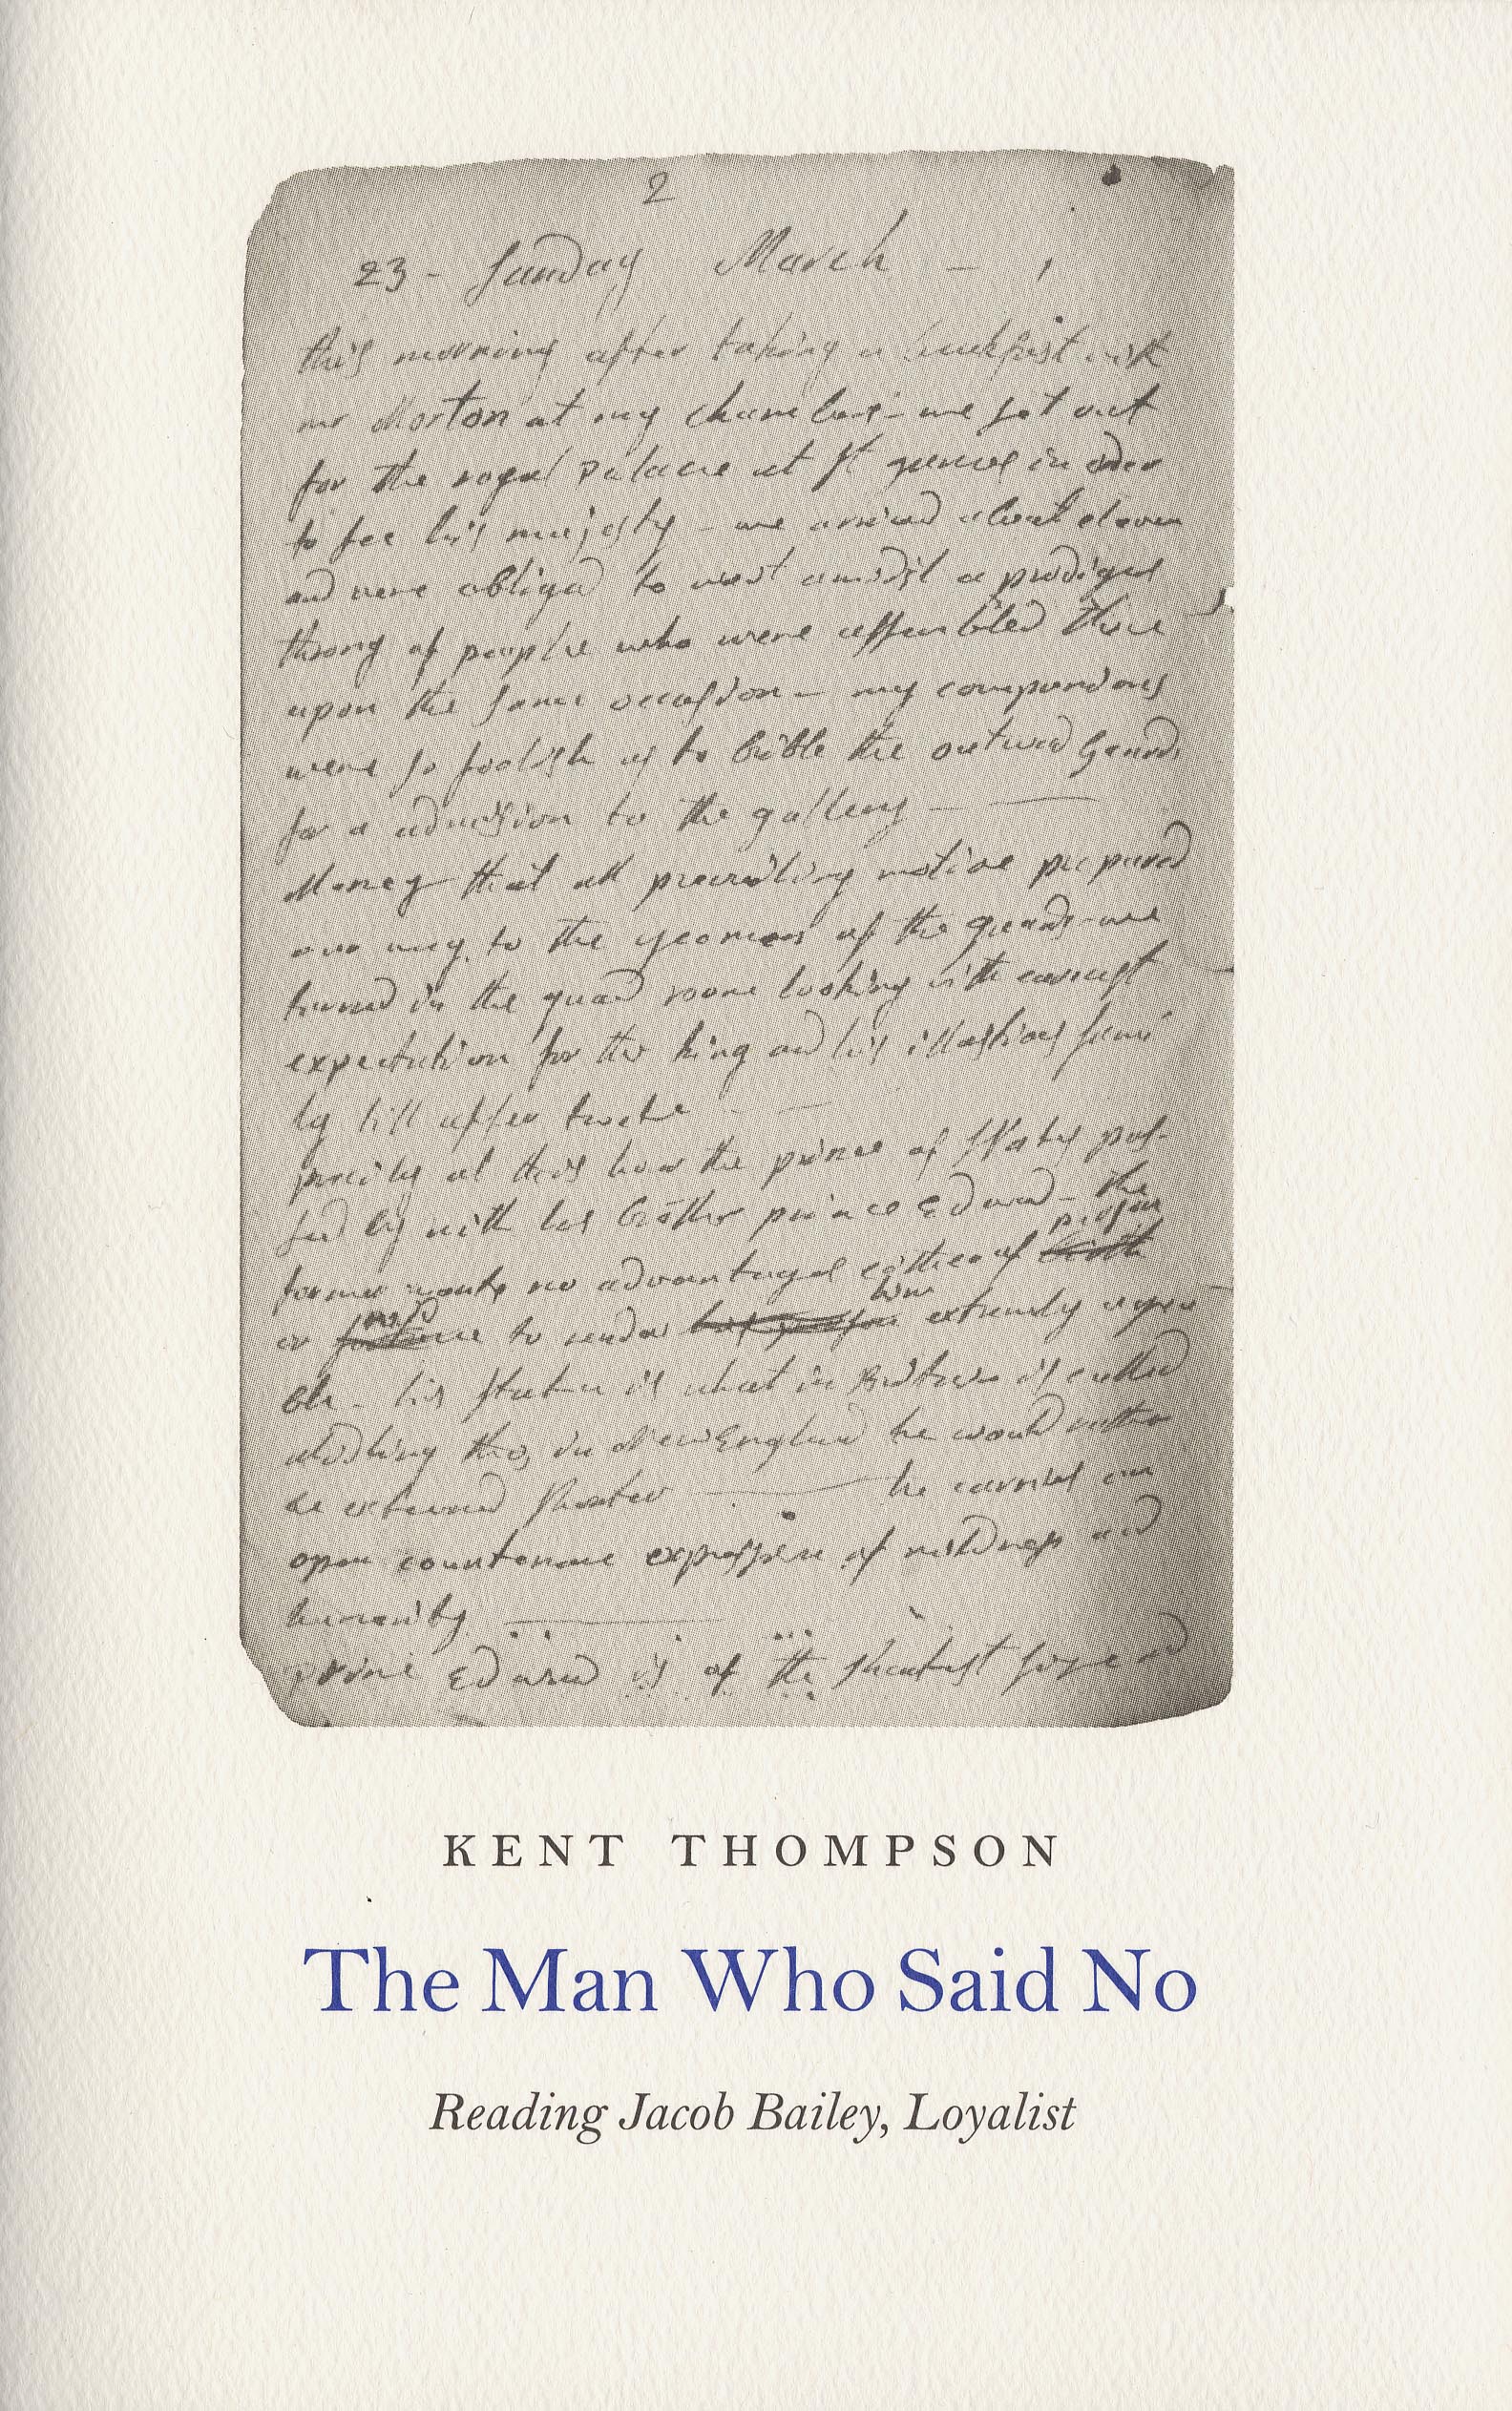 2
23 - Sunday March -
this morning after taking a breakfast with
mr Morton at my chamber - we set out
for the royal palace at St James in order
to see his majesty - we arrived about eleven
and were obliged to wait amidst a prodigious
throng of people who were assembled there
upon the same occasion - my companions
were so foolish as to bribe the outward Guards
for a admission to the gallery -
Money that all prevailing motive prepared
our way to the yeomen of the guards - we
turned in the guard room looking with earnest
expectation for the king and his illustrious fami
ly till after twelve
precisely at this hour the prince of Wales pas-
sed by with his brother prince Edward - the
person
former wants no advantages either of birth
him
or to render extremely agree
ble - his stature is what in Britain is called
midling tho in New England he would rather
be esteemed shorter - he carries an
open countenance expressive of mildness and
humanity
prince Edward is of the shortest size and
KENT THOMPSON
The Man Who Said No
Reading Jacob Bailey, Loyalist